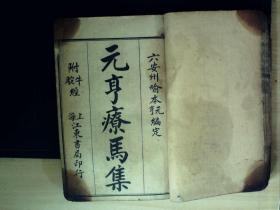 六安州喻本亨元編定
元亨療馬集
附牛駝經
上海江東書局印行